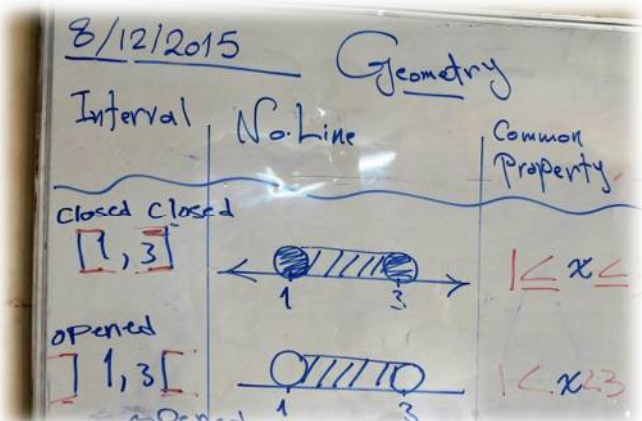 8/12/2015
Geometry
Interval No. Line Common Property
closed closed
[1,3] 1 3 1≤x≤
opened
]1,3[ 1 3 1<x<3